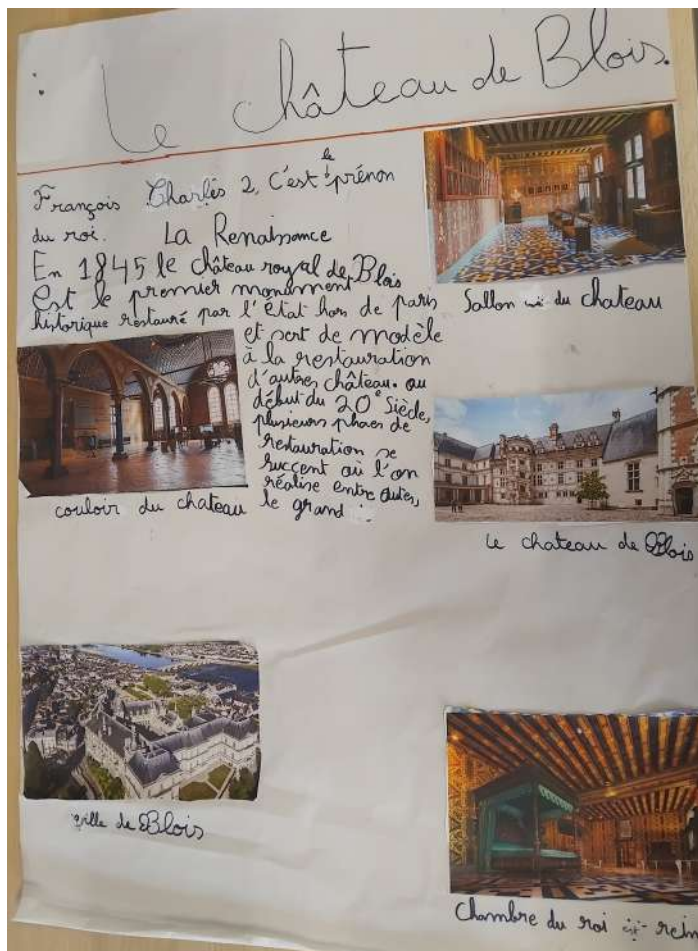 Le château de Blois.
François Charles 2, C'est le prénon
du roi. La Renaissance
En 1845 le château royal de Blois
Est le premier monument
historique restauré par l'État hors de paris
et sert de modèle
à la restauration
d'autres château. au
début du 20e Siècle,
plusieurs phaes de
restauration se
succent où l'on
réalise entre autes,
le grand
Sallon du chateau
couloir du chateau
Le chateau de Blois
ville de Blois
Chambre du roi est rein